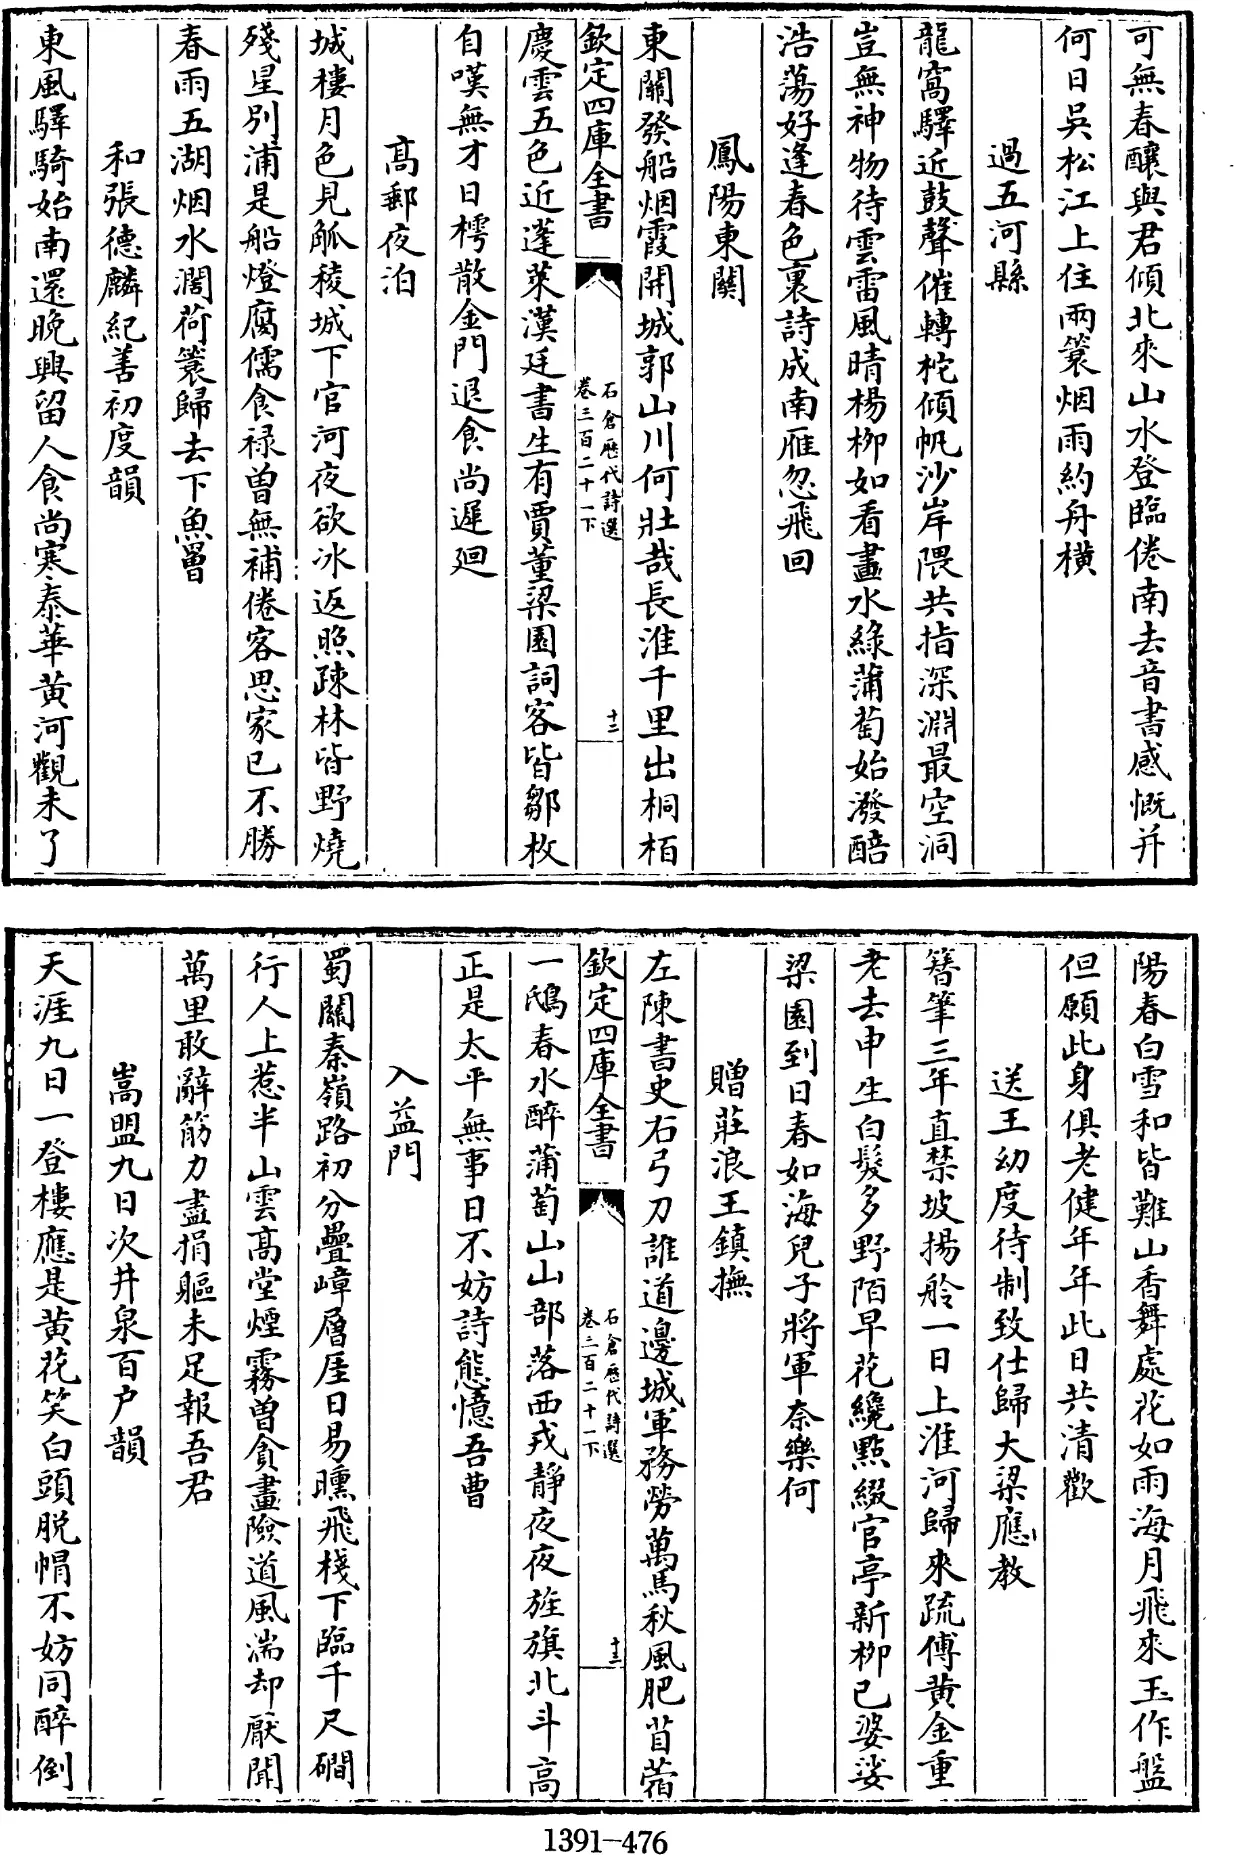 可無春釀與君傾北來山水登臨倦南去音書感慨并
何日吳松江上住兩簑烟雨約舟橫
過五河縣
龍窩驛近鼓聲催轉柁傾帆沙岸隈共指深淵最空洞
豈無神物待雲雷風晴楊柳如看畫水綠蒲萄始潑醅
浩蕩好逢春色裏詩成南雁忽飛回
鳳陽東關
東關發船烟霞開城郭山川何壯哉長淮千里出桐栢
欽定四庫全書
石倉歷代詩選
卷三百二十一下
十二
慶雲五色近蓬萊漢廷書生有賈董梁園詞客皆鄒枚
自嘆無才日樗散金門退食尚遲廻
高郵夜泊
城樓月色見觚稜城下官河夜欲冰返照疎林皆野燒
殘星別浦是船燈腐儒食祿曾無補倦客思家已不勝
春雨五湖烟水濶荷簑歸去下魚罾
和張德麟紀善初度韻
東風驛騎始南還晚興留人食尚寒泰華黃河觀未了
陽春白雪和皆難山香舞處花如雨海月飛來玉作盤
但願此身俱老健年年此日共清歡
送王幼度待制致仕歸大梁應教
簪筆三年直禁坡揚舲一日上淮河歸來疏傅黃金重
老去申生白髮多野陌早花纔點綴官亭新柳已婆娑
梁園到日春如海兒子將軍奈樂何
贈莊浪王鎮撫
左陳書史右弓刀誰道邊城軍務勞萬馬秋風肥苜蓿
欽定四庫全書
石倉歷代詩選
卷三百二十一下
十三
一鴟春水醉蒲萄山山部落西戎靜夜夜旌旗北斗高
正是太平無事日不妨詩態憶吾曹
入益門
蜀關秦嶺路初分疊嶂層厓日易曛飛棧下臨千尺磵
行人上惹半山雲高堂煙霧曾貪畫險道風湍却厭聞
萬里敢辭筋力盡捐軀未足報吾君
嵩盟九日次井泉百户韻
天涯九日一登樓應是黃花笑白頭脱帽不妨同醉倒
1391-476